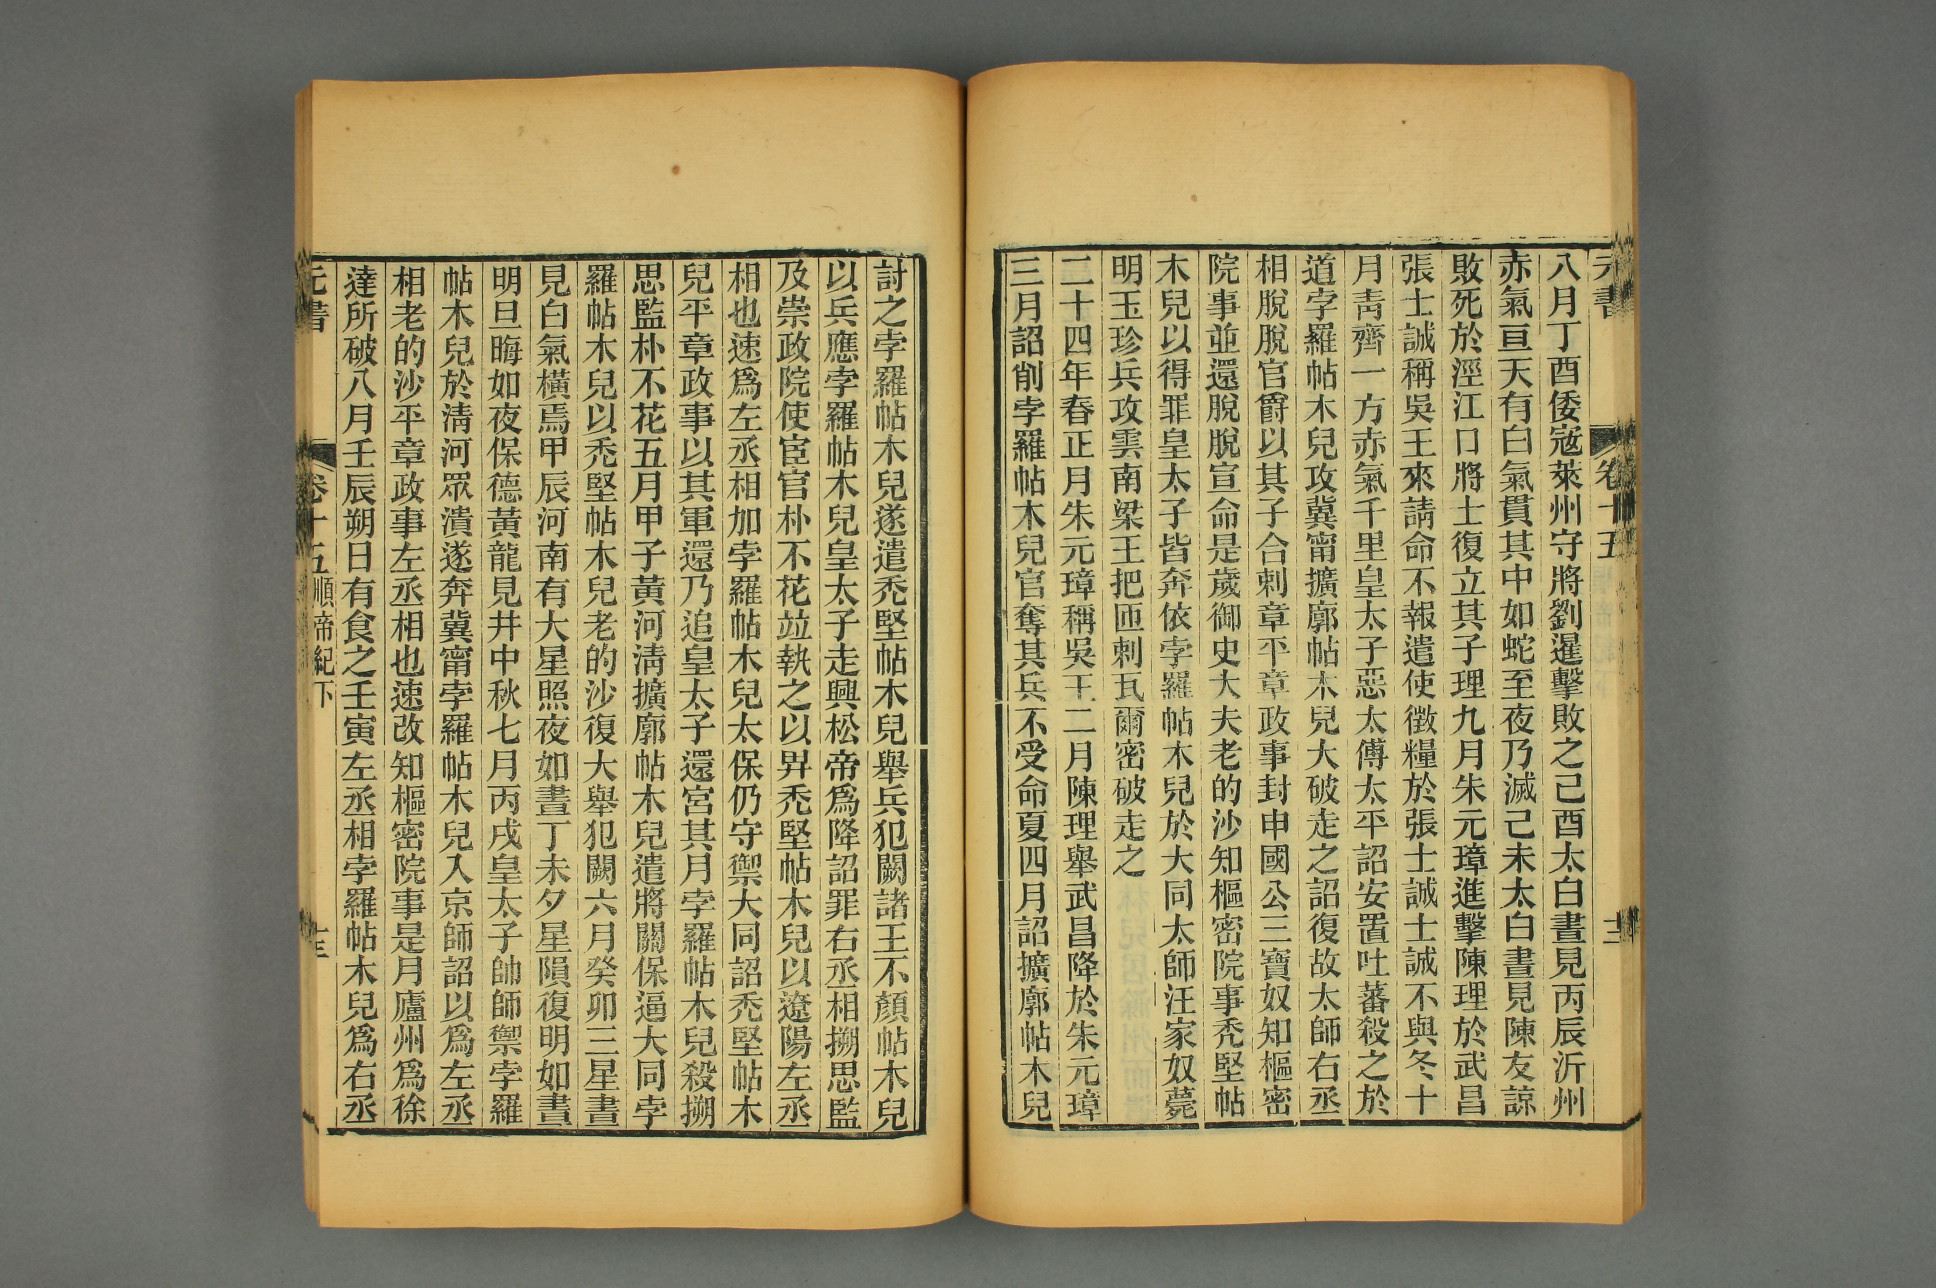 元書 卷十五 十二
八月丁酉倭寇萊州守將劉暹擊敗之己酉太白晝見丙辰沂州
赤氣亘天有白氣貫其中如蛇至夜乃滅己未太白晝見陳友諒
敗死於涇江口將士復立其子理九月朱元璋進擊陳理於武昌
張士誠稱吳王來請命不報遣使徵糧於張士誠士誠不與冬十
月青齊一方赤氣千里皇太子惡太傅太平詔安置吐蕃殺之於
道孛羅帖木兒攻冀甯擴廓帖木兒大破走之詔復故太師右丞
相脫脫官爵以其子合剌章平章政事封申國公三寶奴知樞密
院事並還脫脫宣命是歲御史大夫老的沙知樞密院事禿堅帖
木兒以得罪皇太子皆奔依孛羅帖木兒於大同太師汪家奴薨
明玉珍兵攻雲南梁王把匝剌瓦爾密破走之
二十四年春正月朱元璋稱吳王二月陳理舉武昌降於朱元璋
三月詔削孛羅帖木兒官奪其兵不受命夏四月詔擴廓帖木兒
討之孛羅帖木兒遂遣禿堅帖木兒舉兵犯闕諸王不顏帖木兒
以兵應孛羅帖木兒皇太子走興松帝為降詔罪右丞相搠思監
及崇政院使宦官朴不花竝執之以畀禿堅帖木兒以遼陽左丞
相也速爲左丞相加孛羅帖木兒太保仍守禦大同詔禿堅帖木
兒平章政事以其軍還乃追皇太子還宮其月孛羅帖木兒殺搠
思監朴不花五月甲子黃河清擴廓帖木兒遣將關保逼大同孛
羅帖木兒以禿堅帖木兒老的沙復大舉犯闕六月癸卯三星晝
見白氣橫焉甲辰河南有大星照夜如晝丁未夕星隕復明如晝
明旦晦如夜保德黃龍見井中秋七月丙戌皇太子帥師禦孛羅
帖木兒於清河眾潰遂奔冀甯孛羅帖木兒入京師詔以爲左丞
相老的沙平章政事左丞相也速改知樞密院事是月廬州爲徐
達所破八月壬辰朔日有食之壬寅左丞相孛羅帖木兒爲右丞
元書 卷十五 順帝紀下 十三